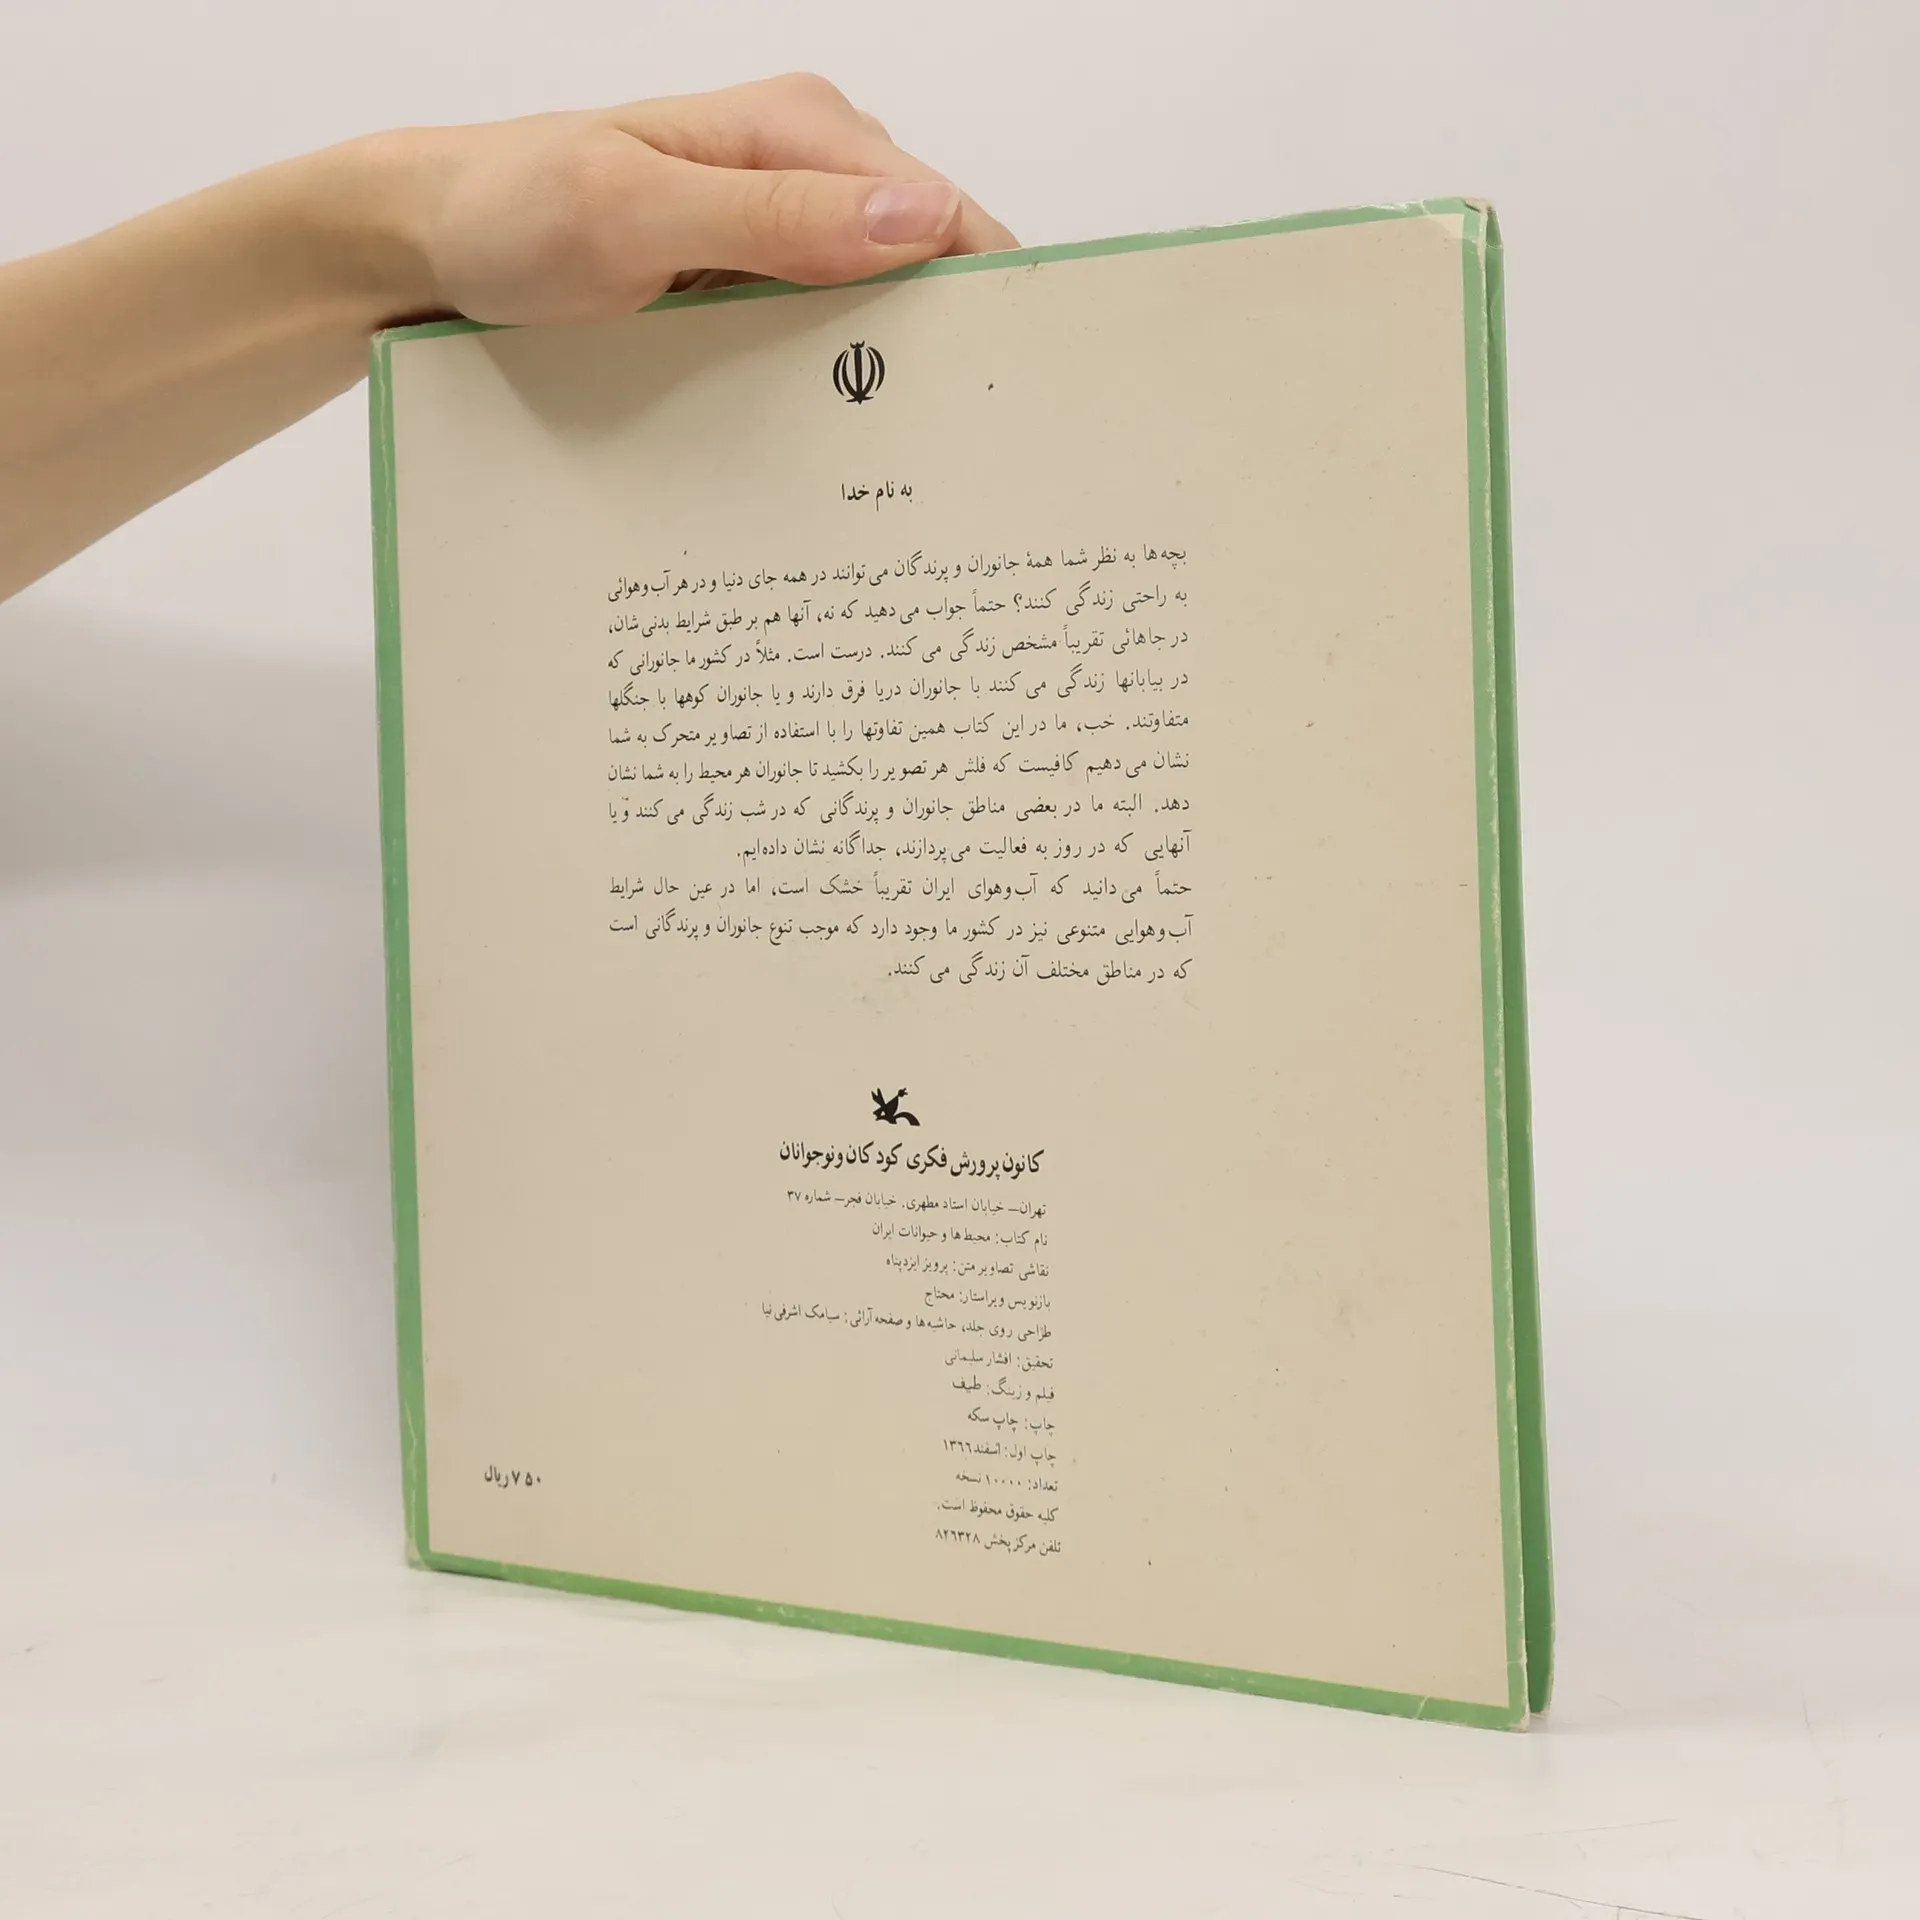 به نام خدا
بچه ها به نظر شما همهٔ جانوران و پرندگان می توانند در همه جای دنیا و در هر آب وهوائی
به راحتی زندگی کنند؟ حتماً جواب می دهید که نه، آنها هم بر طبق شرایط بدنی شان،
در جاهائی تقریباً مشخص زندگی می کنند. درست است. مثلاً در کشور ما جانورانی که
در بیابانها زندگی می کنند با جانوران دریا فرق دارند و یا جانوران کوهها با جنگلها
متفاوتند. خب، ما در این کتاب همین تفاوتها را با استفاده از تصاویر متحرک به شما
نشان می دهیم کافیست که فلش هر تصویر را بکشید تا جانوران هر محیط را به شما نشان
دهد. البته ما در بعضی مناطق جانوران و پرندگانی که در شب زندگی می کنند و یا
آنهایی که در روز به فعالیت می پردازند، جداگانه نشان داده ایم.
حتماً می دانید که آب وهوای ایران تقریباً خشک است، اما در عین حال شرایط
آب وهوایی متنوعی نیز در کشور ما وجود دارد که موجب تنوع جانوران و پرندگانی است
که در مناطق مختلف آن زندگی می کنند.
کانون پرورش فکری کودکان ونوجوانان
تهران_ خیابان استاد مطهری. خیابان فجر_ شماره ۳۷
نام کتاب: محیط ها و حیوانات ایران
نقاشی تصاویر متن: پرویز ایزدپناه
بازنویس ویراستار: محتاج
طراحی روی جلد، حاشیه ها و صفحه آرائی: سیامک اشرفی نیا
تحقیق: افشار سلیمانی
فیلم و زینگ: طیف
چاپ: چاپ سکه
چاپ اول: اسفند ۱۳۶۶
تعداد: ۱۰۰۰۰ نسخه
کلیه حقوق محفوظ است.
تلفن مرکز پخش ۸۲۶۳۲۸
۷۵۰ ریال